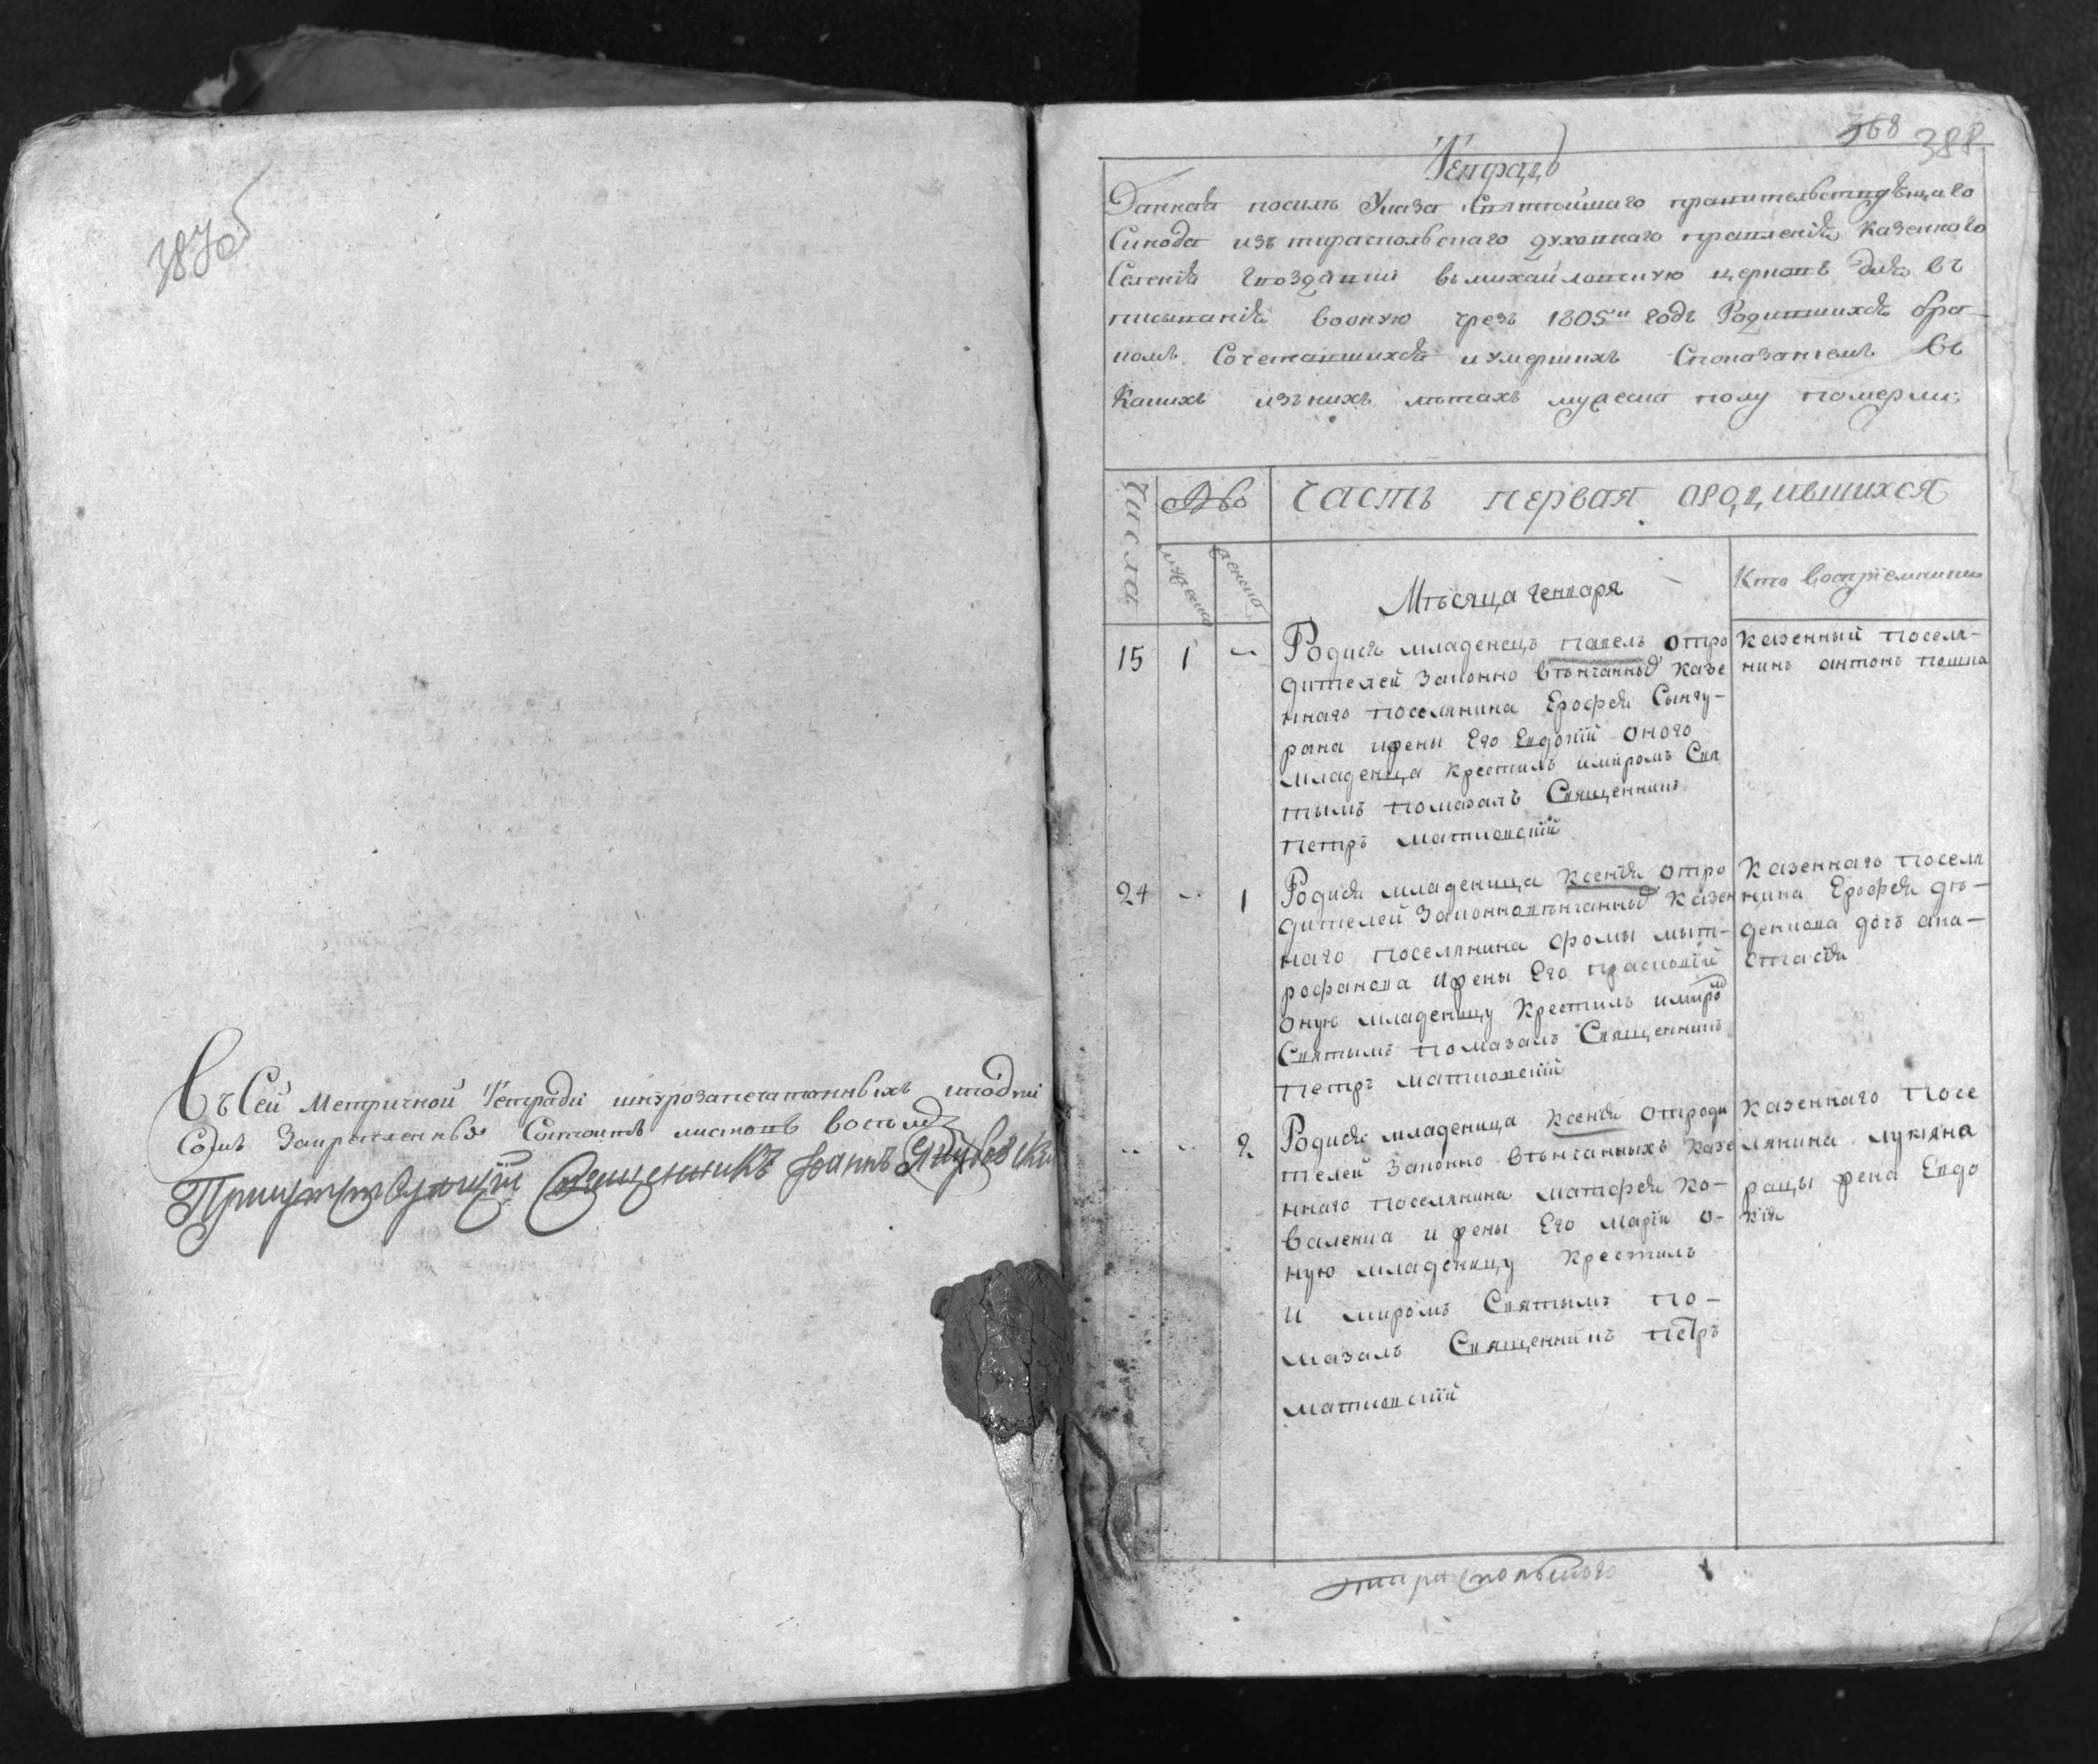 387 об
Въ Сей Метричной Тетради шнурозапечатанныхъ иподпи
Сомъ Закрепленныхъ Состоитъ листовъ восемъ
Присутствующій Священникъ Іоаннъ Якубовскій
368 388
Тетрадь
Данная посилѣ Указа Святѣйшаго правительствующаго
Синода изъ тираспольскаго духовнаго правленія Казенного
Селенія Гвоздавки въ михайловскую церковь для въ
писыванія вооную чрезъ 1805й годъ Родившихся бра
комъ Сочетавшихся и умершихъ Споказаніемъ въ
Какихъ изънихъ лѣтахъ мужеска полу померли:
Числа
№во
Часть первая ородившихся
мужеска
женска
Мѣсяца генваря
Кто воспріемники
15 1 ..
Родися младенецъ павелъ отро
дителей законно вѣнчанныхъ казе
ннаго поселянина Ерофея Сынгу-
рана ижены Его Евдокіи оного
младенца крестилъ имиромъ Свя
тымъ помазалъ Священникъ
петръ матковскій
казенный поселя-
нинъ антонъ
24 .. 1
Родися младеница Ксенія отро
дителей законновѣнчанныхъ казен
наго поселянина фомы мыт-
рофанова ижены Его прасковіи
оную младеницу Крестилъ имиром
Святымъ помазалъ Священникъ
петръ матковскій
казеннаго поселя
нина Ерофея дѣ-
денкова дочь ана-
стасія
.. .. 2
Родися младеница Ксенія отроди
телей законно вѣнчанныхъ казе
ннаго поселянина матфея Ко-
валенка и жены Его маріи о-
ную младеницу крестилъ
и миромъ Святымъ по-
мазалъ Священникъ петръ
матковскій
казеннаго посе
лянина лукіяна
рацы жена Евдо
кія
тираспольского